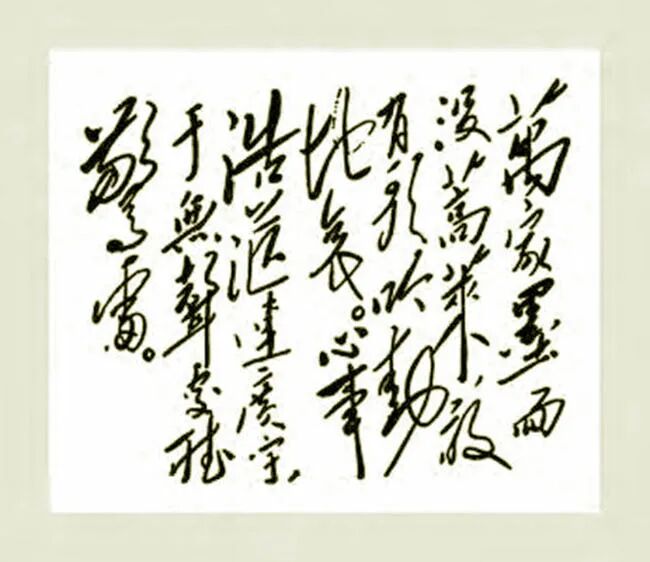 萬家墨面
没蒿萊,敢
有歌吟動
地哀。心事
浩茫連廣宇,
于無聲處聽
驚雷。